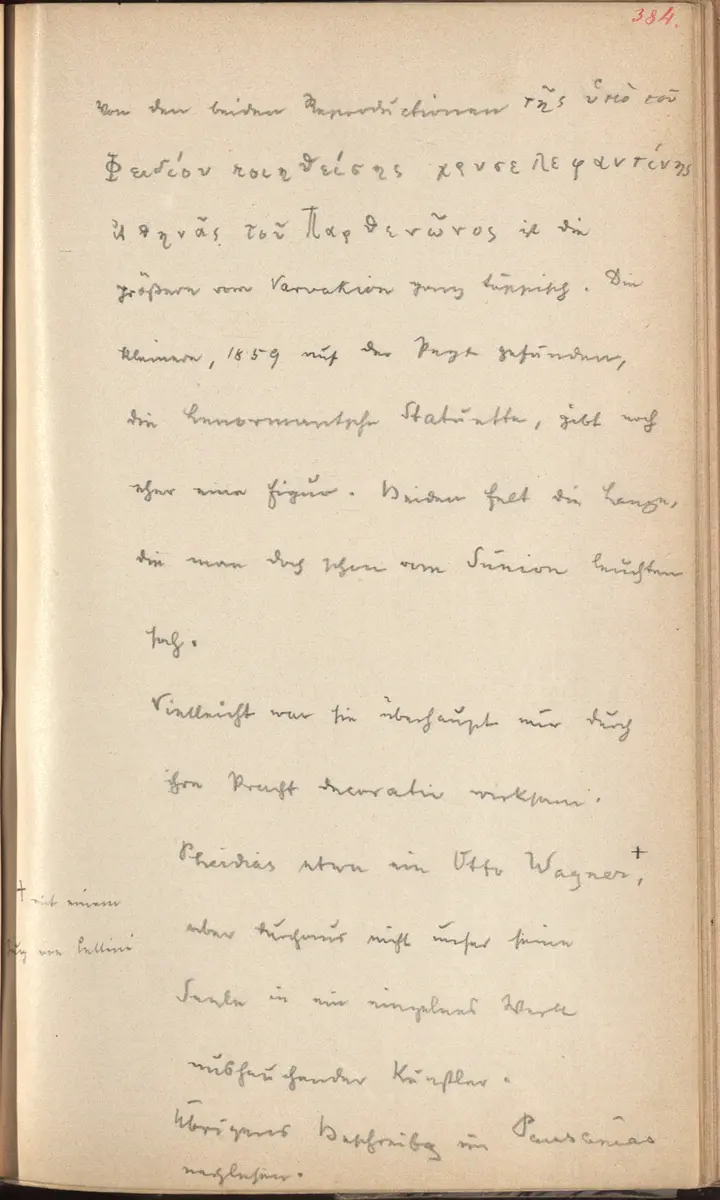 384.
Von den beiden Reproductionen τῆς ὑπὸ τοῦ
Φειδίου ποιηθείσης χρυσελεφαντίνης
Ἀθηνᾶς τοῦ Παρθενῶνος ist die
größere vom Varvakion ganz läppisch. Die
kleinere, 1859 auf der Pnyx gefunden,
die Lenormantsche Statuette, gibt noch
eher eine Figur. Beiden felt die Lanze,
die man doch schon vom Sunion leuchten
sah.
Vielleicht war sie überhaupt nur durch
ihre Pracht decorativ wirksam.
Pheidias etwa ein Otto Wagner+,
+ mit einem
Zug von Cellini
aber durchaus nicht unser seine
Seele in ein einzelnes Werk
aushauchender Künstler.
Übrigens Beschreibg im Pausanias
nachlesen.